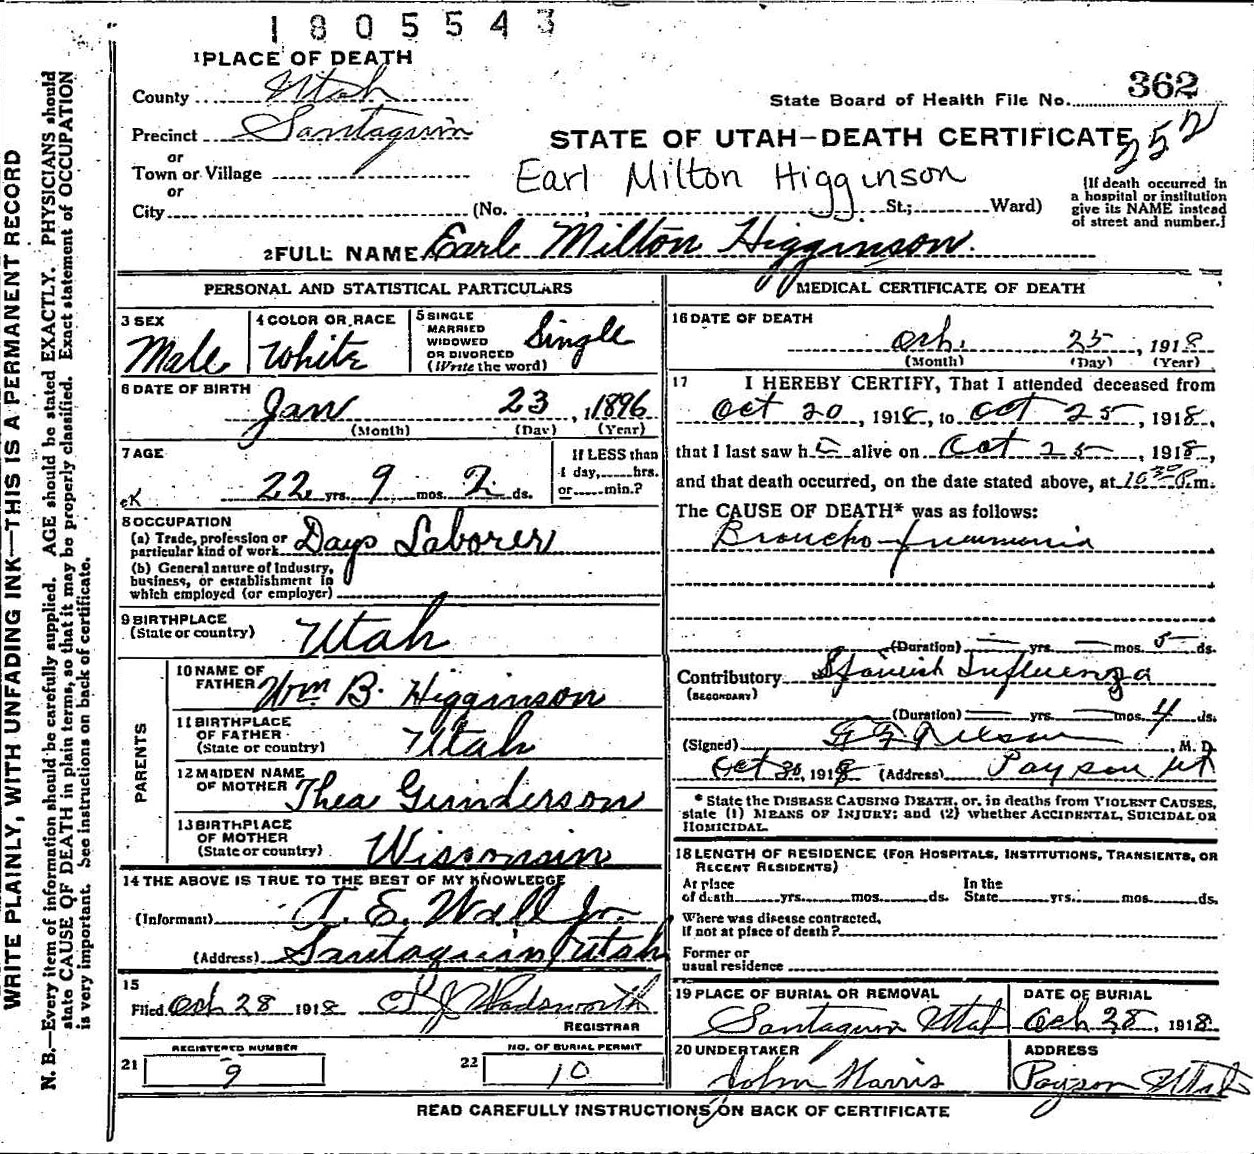 1805543
1 PLACE OF DEATH
County Utah
State Board of Health File No. 362
Precinct Santaquin
STATE OF UTAH—DEATH CERTIFICATE
252
or
Town or Village
Earl Milton Higginson
or
City (No. , St.; Ward)
[If death occurred in
a hospital or institution
give its NAME instead
of street and number.]
2 FULL NAME Earl Milton Higginson.
PERSONAL AND STATISTICAL PARTICULARS
3 SEX
Male
4 COLOR OR RACE
White
5 SINGLE
MARRIED
WIDOWED
OR DIVORCED
(Write the word)
Single
6 DATE OF BIRTH
Jan 23, 1896
(Month) (Day) (Year)
7 AGE
22 yrs. 9 mos. 2 ds.
If LESS than
1 day, hrs.
or min.?
8 OCCUPATION
(a) Trade, profession or
particular kind of work Days Laborer
(b) General nature of Industry,
business, or establishment in
which employed (or employer)
9 BIRTHPLACE
(State or country) Utah
PARENTS
10 NAME OF
FATHER Wm B. Higginson
11 BIRTHPLACE
OF FATHER
(State or country) Utah
12 MAIDEN NAME
OF MOTHER Thea Gunderson
13 BIRTHPLACE
OF MOTHER
(State or country) Wisconsin
14 THE ABOVE IS TRUE TO THE BEST OF MY KNOWLEDGE
(Informant) T. E. Wall Jr.
(Address) Santaquin Utah
15
Filed Oct 28 1918 Wadsworth
REGISTRAR
21 REGISTERED NUMBER
9
22 NO. OF BURIAL PERMIT
10
MEDICAL CERTIFICATE OF DEATH
16 DATE OF DEATH
Oct. 25, 1918
(Month) (Day) (Year)
17 I HEREBY CERTIFY, That I attended deceased from
Oct 20, 1918, to Oct 25, 1918,
that I last saw h alive on Oct 25, 1918,
and that death occurred, on the date stated above, at 10 30 P.m.
The CAUSE OF DEATH* was as follows:
Broncho-pneumonia
(Duration) — yrs. — mos. 5 ds.
Contributory Spanish Influenza
(SECONDARY)
(Duration) — yrs. — mos. 4 ds.
(Signed) , M. D.
Oct 30, 1918 (Address) Payson Ut
* State the DISEASE CAUSING DEATH, or, in deaths from VIOLENT CAUSES,
state (1) MEANS OF INJURY; and (2) whether ACCIDENTAL, SUICIDAL OR
HOMICIDAL.
18 LENGTH OF RESIDENCE (FOR HOSPITALS, INSTITUTIONS, TRANSIENTS, OR
RECENT RESIDENTS)
At place In the
of death yrs. mos. ds. State yrs. mos. ds.
Where was disease contracted,
if not at place of death?
Former or
usual residence
19 PLACE OF BURIAL OR REMOVAL
Santaquin Utah
DATE OF BURIAL
Oct 28, 1918
20 UNDERTAKER
John Harris
ADDRESS
Payson Utah
READ CAREFULLY INSTRUCTIONS ON BACK OF CERTIFICATE
WRITE PLAINLY, WITH UNFADING INK—THIS IS A PERMANENT RECORD
N. B.—Every item of information should be carefully supplied. AGE should be stated EXACTLY. PHYSICIANS should
state CAUSE OF DEATH in plain terms, so that it may be properly classified. Exact statement of OCCUPATION
is very important. See instructions on back of certificate.